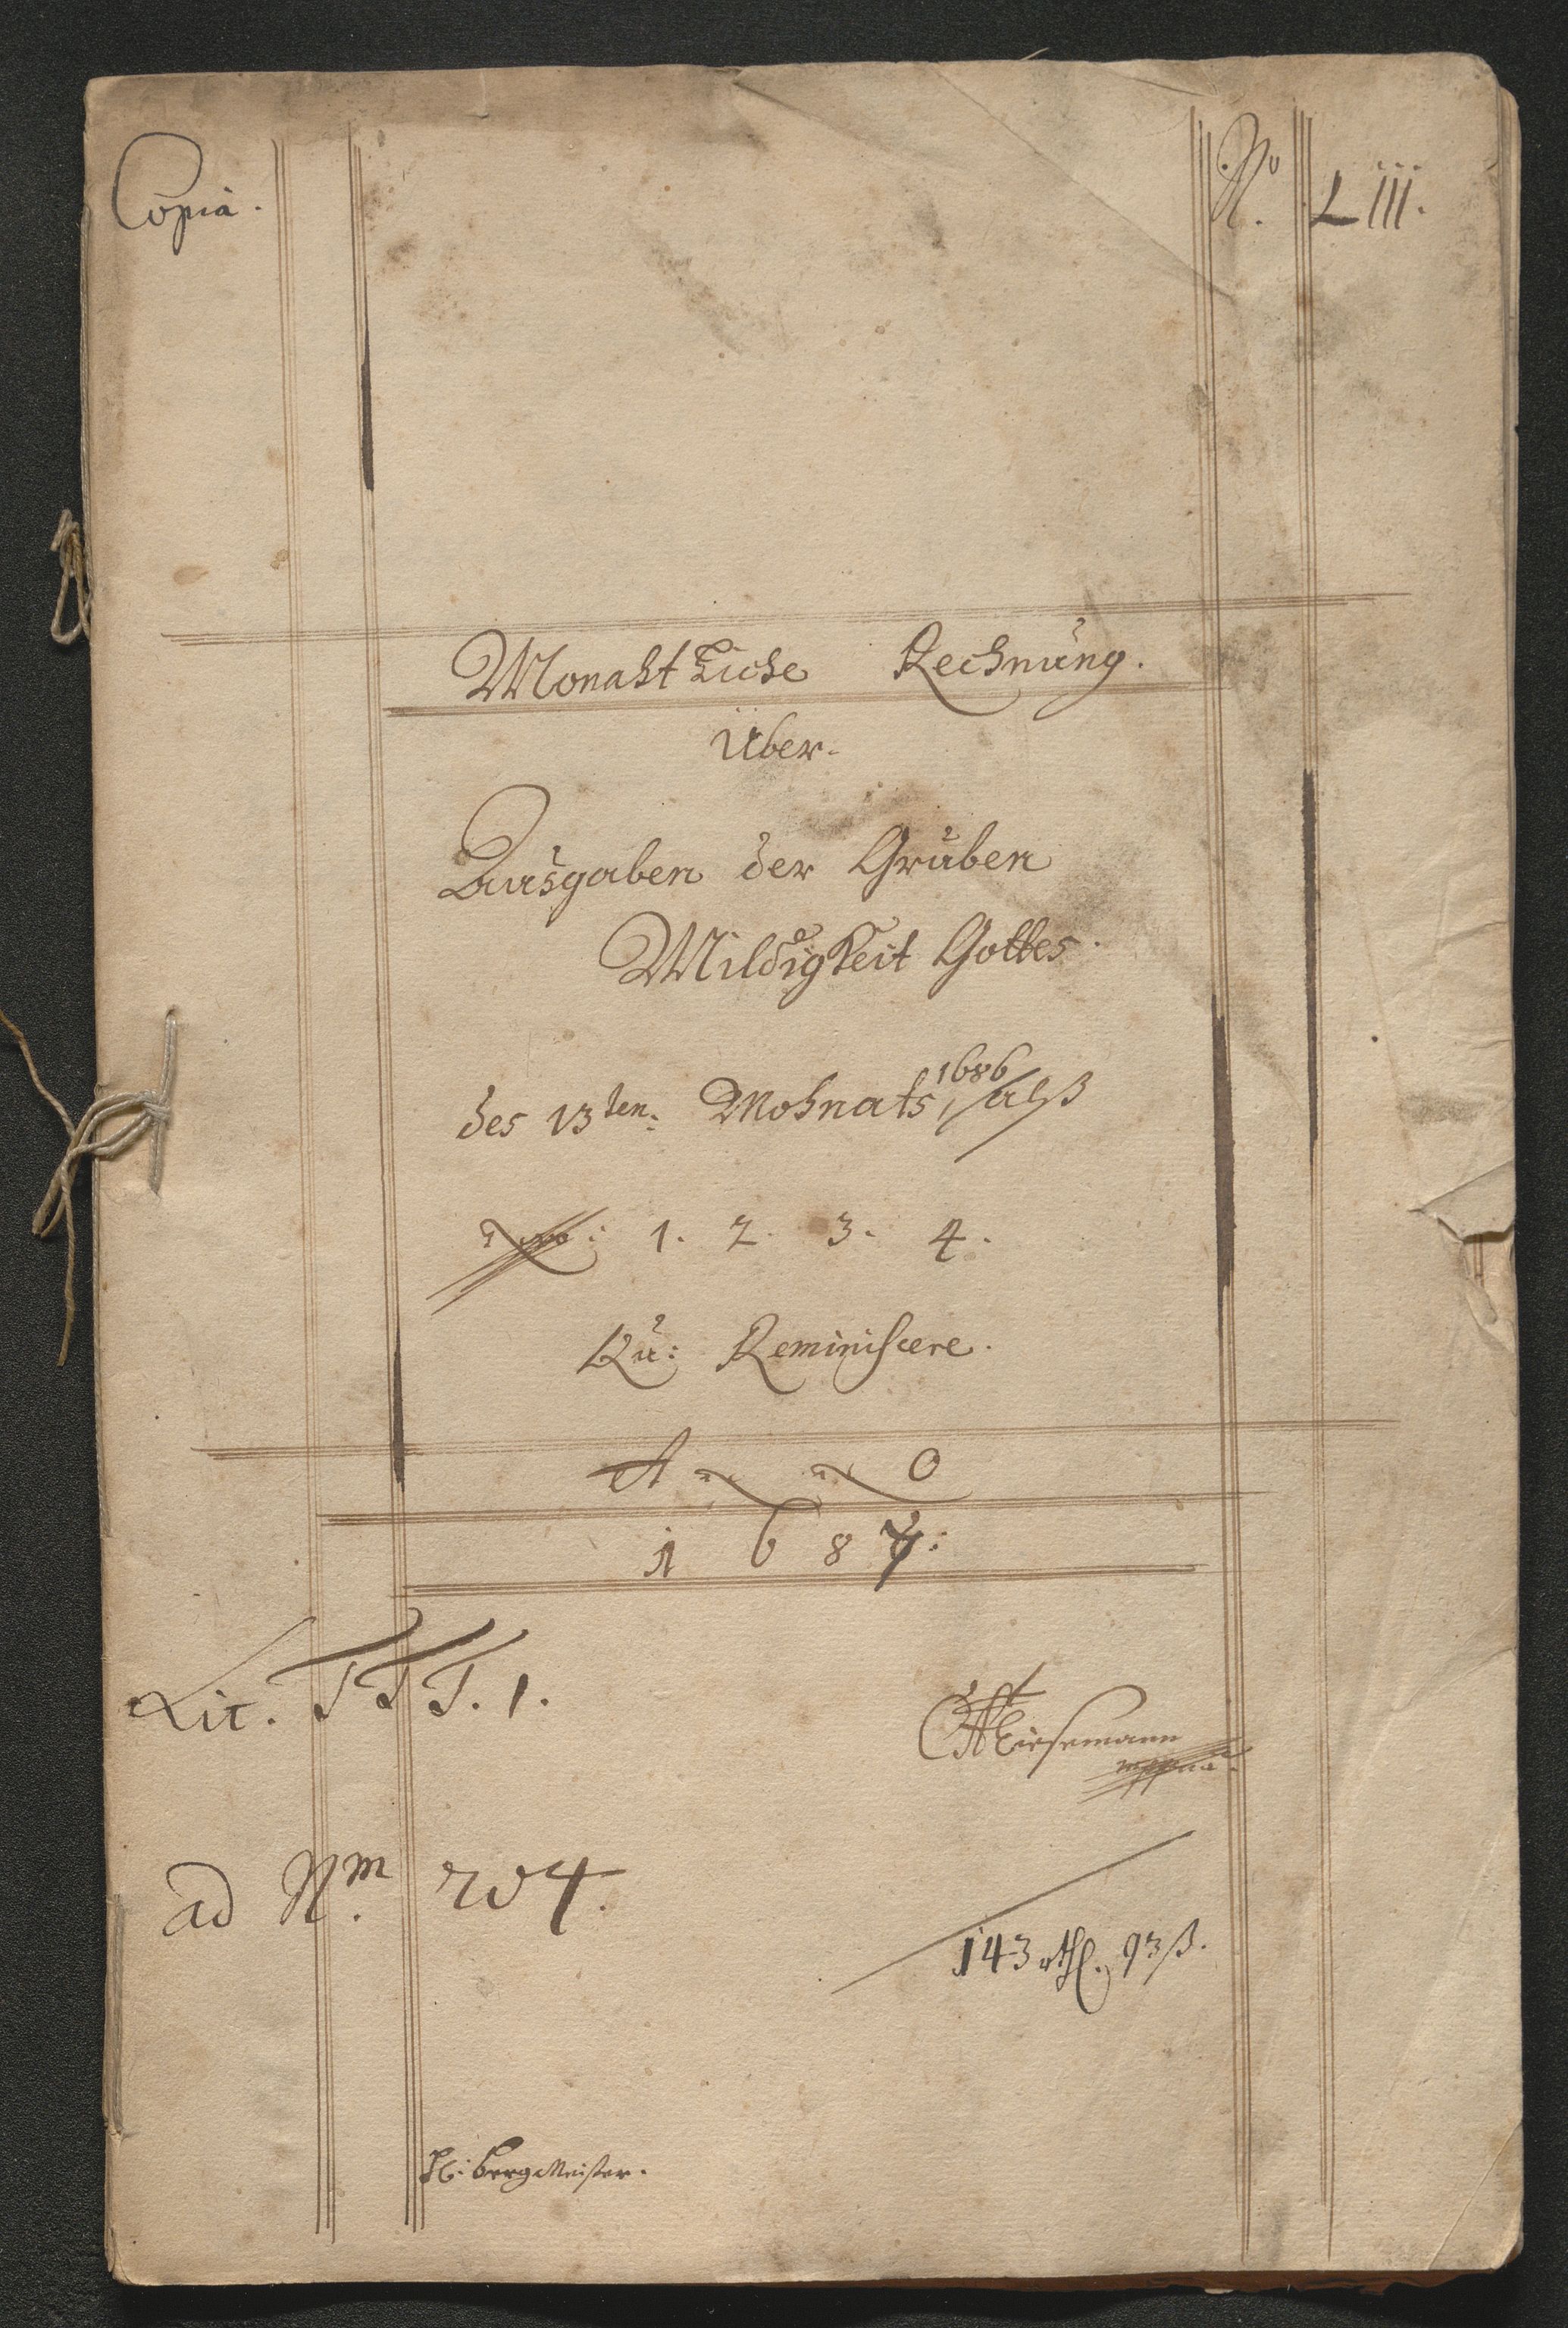 Copia.
No. LIII.
Monahtliche Rechnung.
Über
Ausgaben der Gruben
Mildigkeit Gottes.
des 13ten: Mohnats, 1686 alß
No: 1. 2. 3. 4.
Qu: Reminiscere.
Anno
1687:
Lit. TTT. 1.
mppria.
ad Nm. 204.
143 rthl. 93 ß.
H: bergMeister.